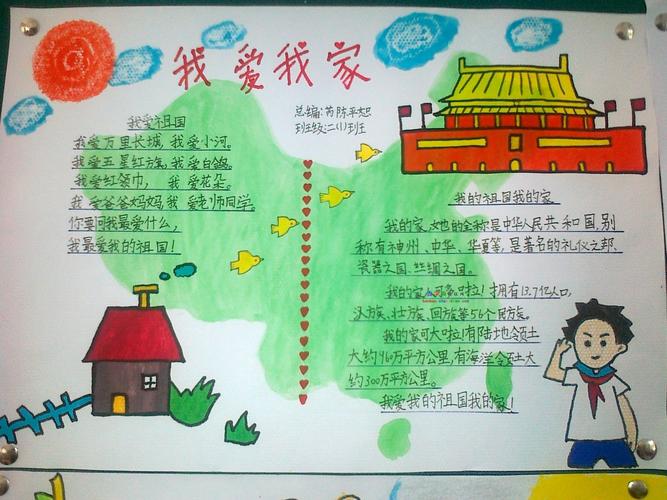 我爱我家
总编:芮陈平旭
班级:二(1)班
我爱祖国
我爱万里长城,我爱小河。
我爱五星红旗,我爱白鸽。
我爱红领巾, 我爱花朵。
我爱爸爸妈妈,我爱老师同学。
你要问我最爱什么,
我最爱我的祖国!
我的祖国我的家
我的家,她的全称是中华人民共和国,别
称有神州、中华、华夏等,是著名的礼仪之邦、
瓷器之国、丝绸之国。
我的家人可多啦!拥有13.7亿人口,
汉族、壮族、回族等56个民族。
我的家可大啦!有陆地领土
大约960万平方公里,有海洋领土大
约300万平方公里。
我爱我的祖国我的家!